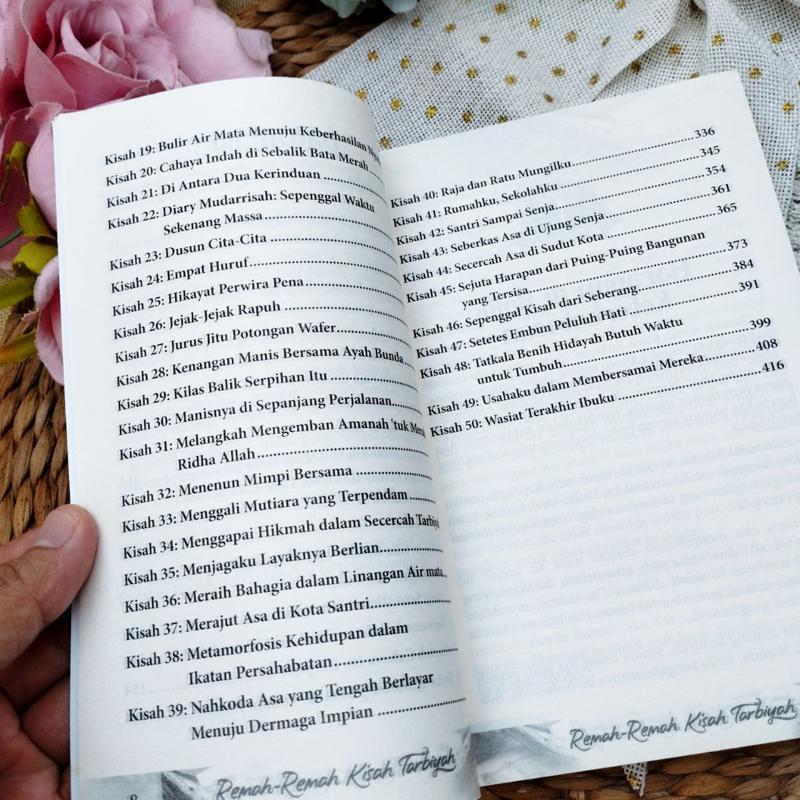 Kisah 19: Bulir Air Mata Menuju Keberhasilan
Kisah 20: Cahaya Indah di Sebalik Bata Merah
Kisah 21: Di Antara Dua Kerinduan
Kisah 22: Diary Mudarrisah: Sepenggal Waktu
Sekenang Massa
Kisah 23: Dusun Cita-Cita
Kisah 24: Empat Huruf
Kisah 25: Hikayat Perwira Pena
Kisah 26: Jejak-Jejak Rapuh
Kisah 27: Jurus Jitu Potongan Wafer
Kisah 28: Kenangan Manis Bersama Ayah Bunda
Kisah 29: Kilas Balik Serpihan Itu
Kisah 30: Manisnya di Sepanjang Perjalanan
Kisah 31: Melangkah Mengemban Amanah 'tuk
Ridha Allah
Kisah 32: Menenun Mimpi Bersama
Kisah 33: Menggali Mutiara yang Terpendam
Kisah 34: Menggapai Hikmah dalam Secercah
Kisah 35: Menjagaku Layaknya Berlian
Kisah 36: Meraih Bahagia dalam Linangan Air mata
Kisah 37: Merajut Asa di Kota Santri
Kisah 38: Metamorfosis Kehidupan dalam
Ikatan Persahabatan
Kisah 39: Nahkoda Asa yang Tengah Berlayar
Menuju Dermaga Impian
Remah-Remah Kisah Tarbiyah
Kisah 40: Raja dan Ratu Mungilku 336
Kisah 41: Rumahku, Sekolahku 345
Kisah 42: Santri Sampai Senja 354
Kisah 43: Seberkas Asa di Ujung Senja 361
Kisah 44: Secercah Asa di Sudut Kota 365
Kisah 45: Sejuta Harapan dari Puing-Puing Bangunan
yang Tersisa 373
Kisah 46: Sepenggal Kisah dari Seberang 384
Kisah 47: Setetes Embun Peluluh Hati 391
Kisah 48: Tatkala Benih Hidayah Butuh Waktu
untuk Tumbuh 399
Kisah 49: Usahaku dalam Membersamai Mereka 408
Kisah 50: Wasiat Terakhir Ibuku 416
Remah-Remah Kisah Tarbiyah